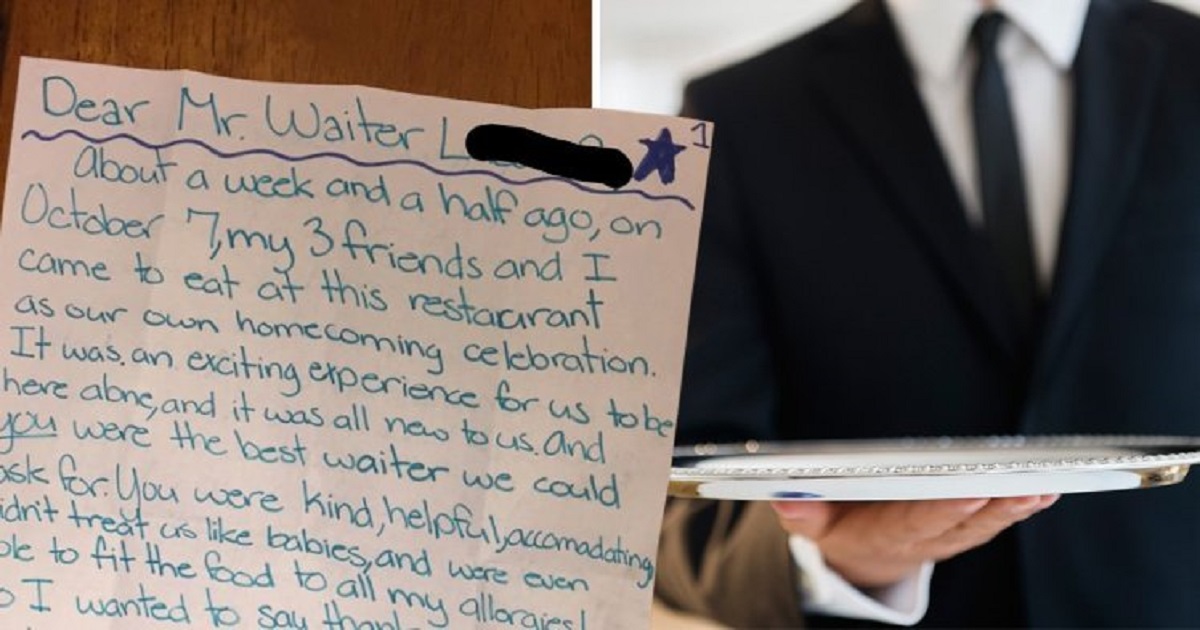 Dear Mr. Waiter L
1
about a week and a half ago, on
October 7, my 3 friends and I
came to eat at this restaurant
as our own homecoming celebration.
It was an exciting experience for us to be
here alone, and it was all new to us. and
you were the best waiter we could
ask for. You were kind, helpful, accomadating,
idn't treat us like babies, and were even
ble to fit the food to all my allergies!
o I wanted to say thank